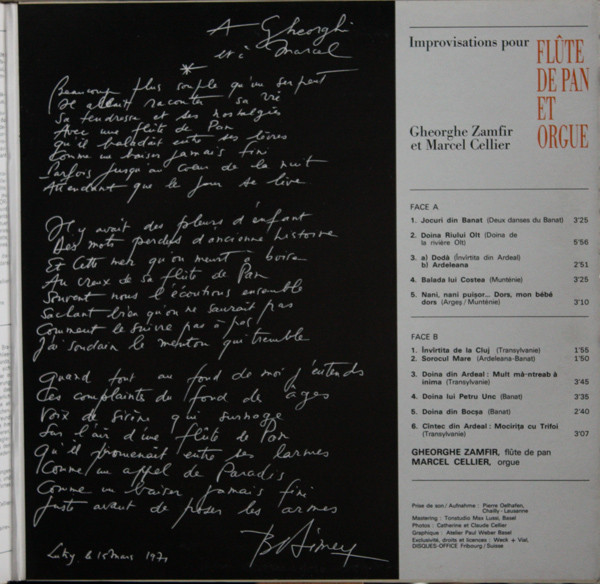 A Gheorghi
et à Marcel
*
Beaucoup plus souple qu'un serpent
Il allait raconter sa vie
Sa tendresse et ses nostalgies
Avec une flûte de Pan
Qu'il baladait entre ses lèvres
Comme un baiser jamais fini
Parfois jusqu'au cœur de la nuit
Attendant que le jour se lève
Il y avait des pleurs d'enfant
Des mots perdus d'ancienne histoire
Et cette mer qu'on meurt à boire
Au creux de sa flûte de Pan
Souvent nous l'écoutions ensemble
Sachant bien qu'on ne saurait pas
Comment le suivre pas à pas
J'ai soudain le menton qui tremble
Quand tout au fond de moi j'entends
Ces complaintes du fond des âges
Voix de sirène qui surnage
Sur l'air d'une flûte de Pan
Qu'il promenait entre ses larmes
Comme un appel de Paradis
Comme un baiser jamais fini
Juste avant de poser les armes
le 15 mars 1971
Improvisations pour
FLÛTE
DE PAN
ET
ORGUE
Gheorghe Zamfir
et Marcel Cellier
FACE A
1. Jocuri din Banat (Deux danses du Banat) 3'25
2. Doina Riului Olt (Doina de
la rivière Olt) 5'56
3. a) Dodă (Învîrtita din Ardeal)
b) Ardeleana 2'51
4. Balada lui Costea (Munténie) 3'25
5. Nani, nani puișor... Dors, mon bébé
dors (Argeș/Munténie) 3'10
FACE B
1. Învîrtita de la Cluj (Transylvanie) 1'55
2. Sorocul Mare (Ardeleana-Banat) 1'50
3. Doina din Ardeal: Mult mă-ntreab à
inima (Transylvanie) 3'45
4. Doina lui Petru Unc (Banat) 3'35
5. Doina din Bocșa (Banat) 2'40
6. Cîntec din Ardeal: Mocirița cu Trifoi
(Transylvanie) 3'07
GHEORGHE ZAMFIR, flûte de pan
MARCEL CELLIER, orgue
Prise de son/Aufnahme: Pierre Oelhafen,
Chailly-Lausanne
Mastering: Tonstudio Max Lussi, Basel
Photos: Catherine et Claude Cellier
Graphique: Atelier Paul Weber Basel
Exclusivité, droits et licences: Weck + Vial,
DISQUES-OFFICE Fribourg/Suisse